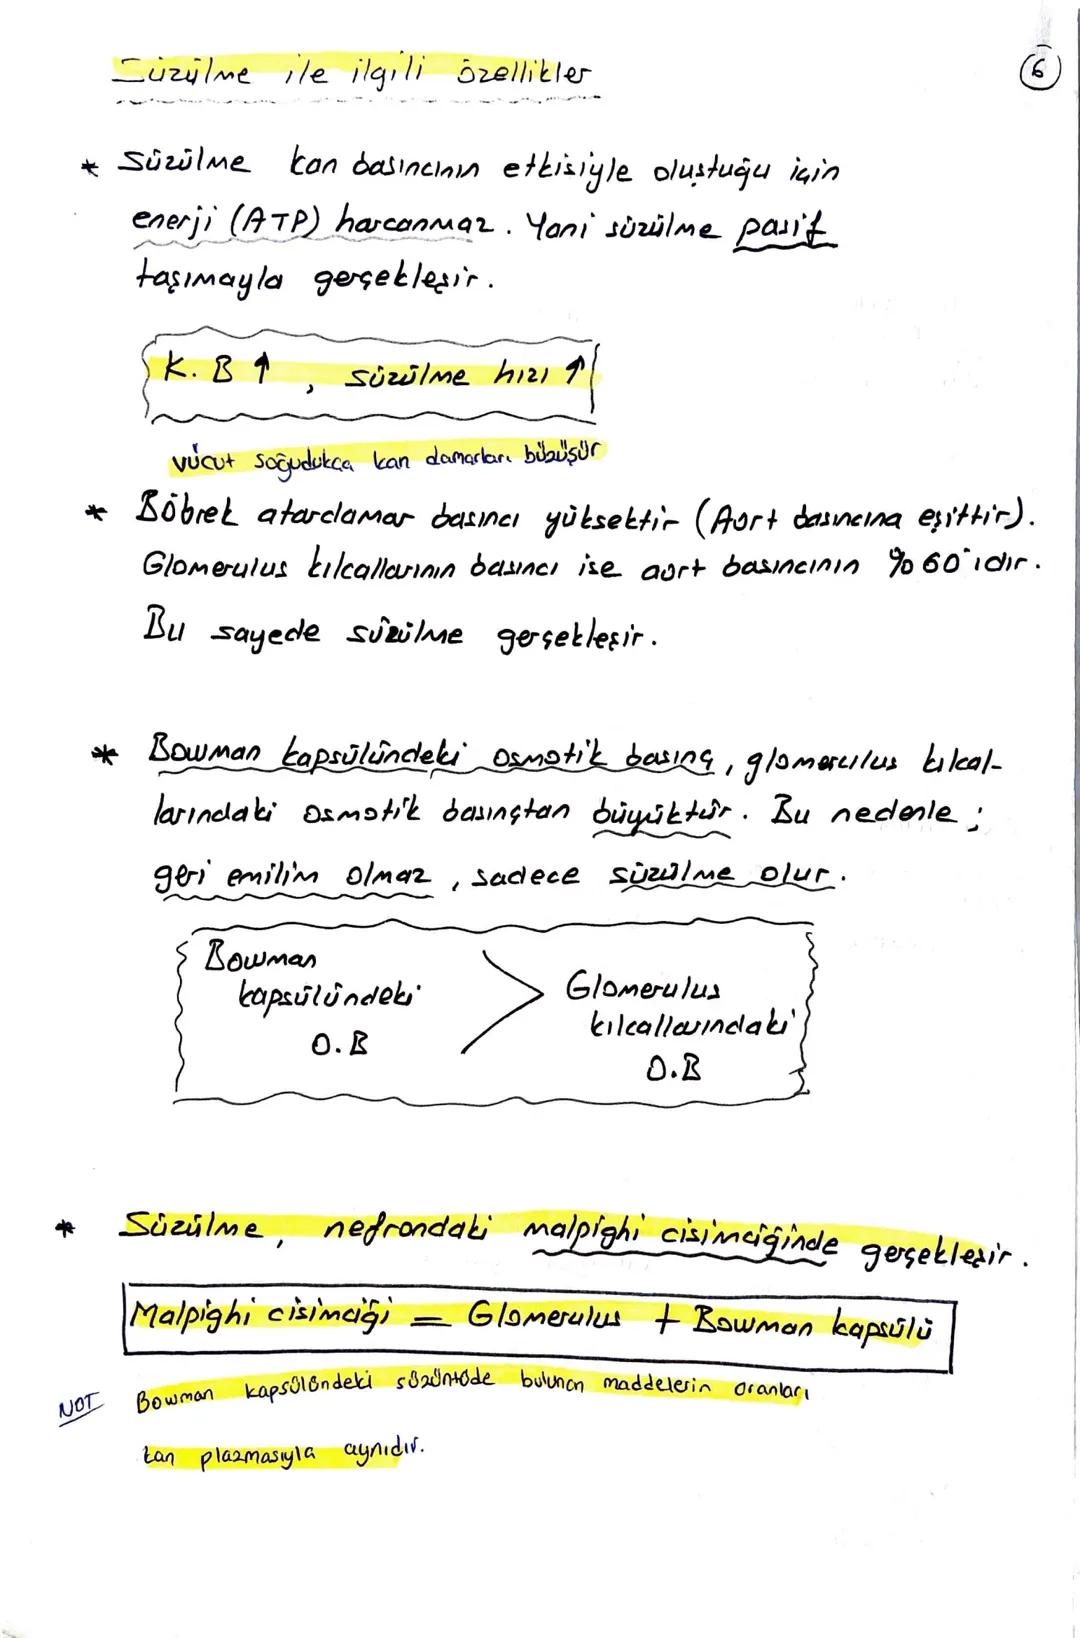 Süzülme ile ilgili özellikler
6
* Süzülme kan basıncının etkisiyle oluştuğu için
enerji (ATP) harcanmaz. Yani süzülme pasif
taşımayla gerçekleşir.
K. B ↑, süzülme hızı ↑
vücut soğudukça kan damarları büzüşür
* Böbrek atardamar basıncı yüksektir (Aort basıncına eşittir).
Glomerulus kılcallarının basıncı ise aort basıncının %60'ıdır.
Bu sayede süzülme gerçekleşir.
* Bowman kapsülündeki osmotik basınç, glomerulus kılcal-
larındaki osmotik basınçtan büyüktür. Bu nedenle ;
geri emilim olmaz, sadece süzülme olur.
Bowman
kapsülündeki
O.B
>
Glomerulus
kılcallarındaki
O.B
* Süzülme, nefrondaki malpighi cisimciğinde gerçekleşir.
Malpighi cisimciği = Glomerulus + Bowman kapsülü
NOT Bowman kapsülündeki süzüntüde bulunan maddelerin oranları
kan plazmasıyla aynıdır.